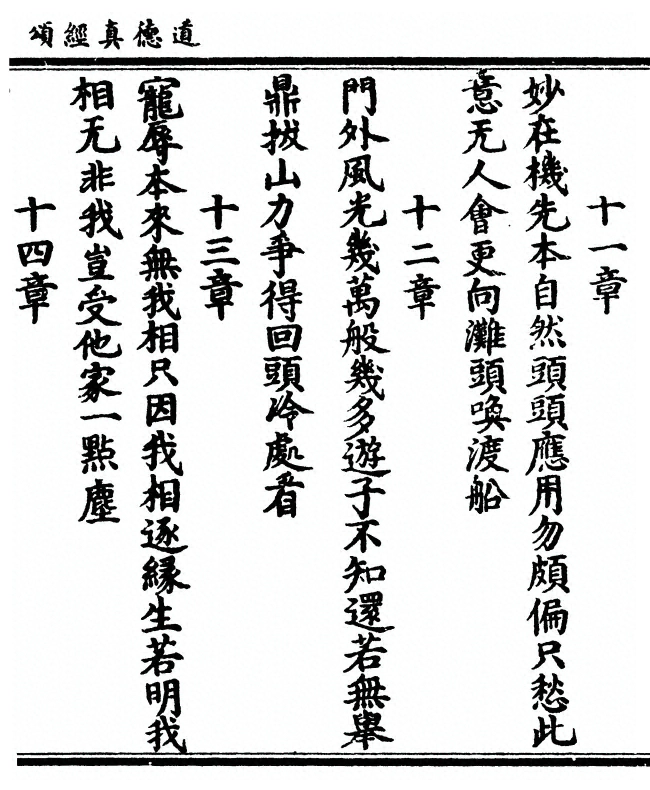 道德真經頌
十一章
妙在機先本自然頭頭應用勿頗偏只愁此
意无人會更向灘頭喚渡船
十二章
門外風光幾萬般幾多遊子不知還若無舉
鼎拔山力爭得回頭冷處看
十三章
寵辱本來無我相只因我相逐緣生若明我
相无非我豈受他家一點塵
十四章